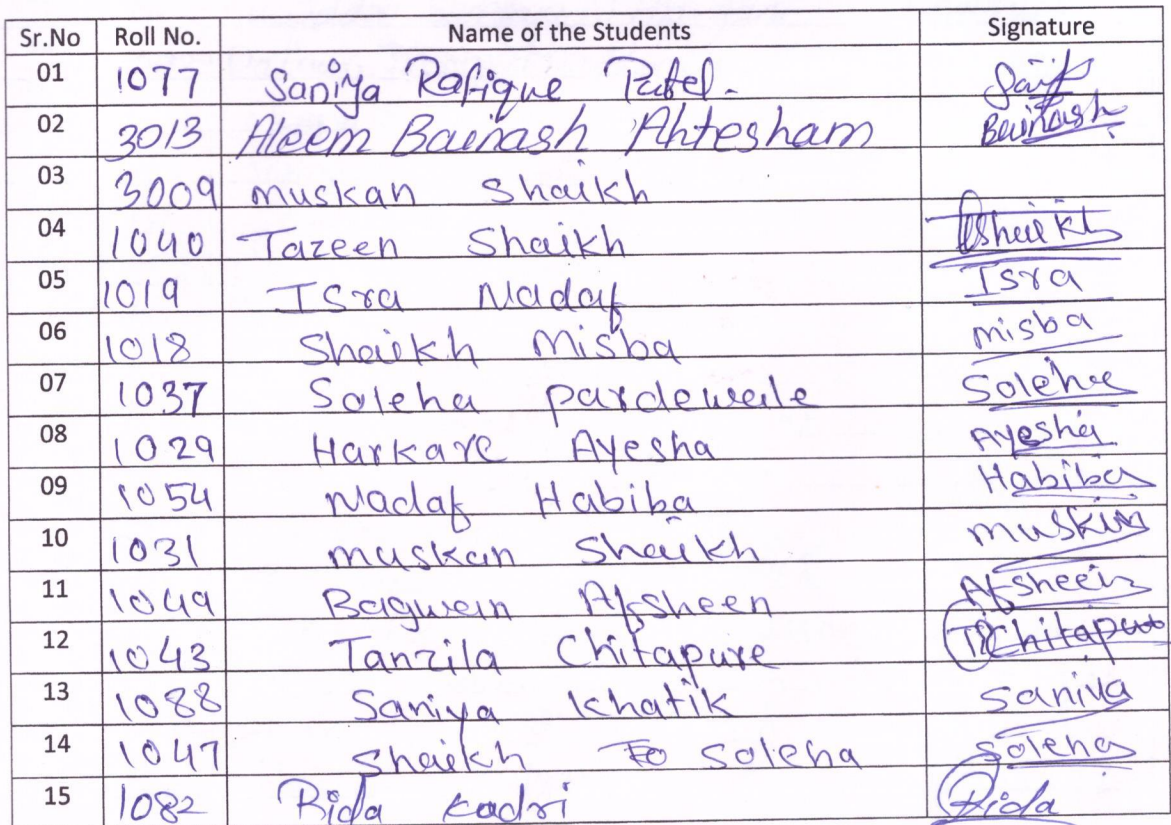 Sr.No Roll No. Name of the Students Signature
01 1077 Saniya Rafique Patel.
02 3013 Aleem Bainash Ahtesham Bainash
03 3009 muskan Shaikh
04 1040 Tazeen Shaikh Tshaikh
05 1019 Isra Nadaf Isra
06 1018 Shaikh Misba misba
07 1037 Saleha pardewale Saleha
08 1029 Harkare Ayesha Ayesha
09 1054 Nadaf Habiba Habiba
10 1031 muskan Shaikh muskan
11 1049 Bagwan Afsheen Afsheen
12 1043 Tanzila Chitapure TChitapure
13 1088 Saniya Khatik Saniya
14 1047 Shaikh Saleha Saleha
15 1082 Rida Kadri Rida